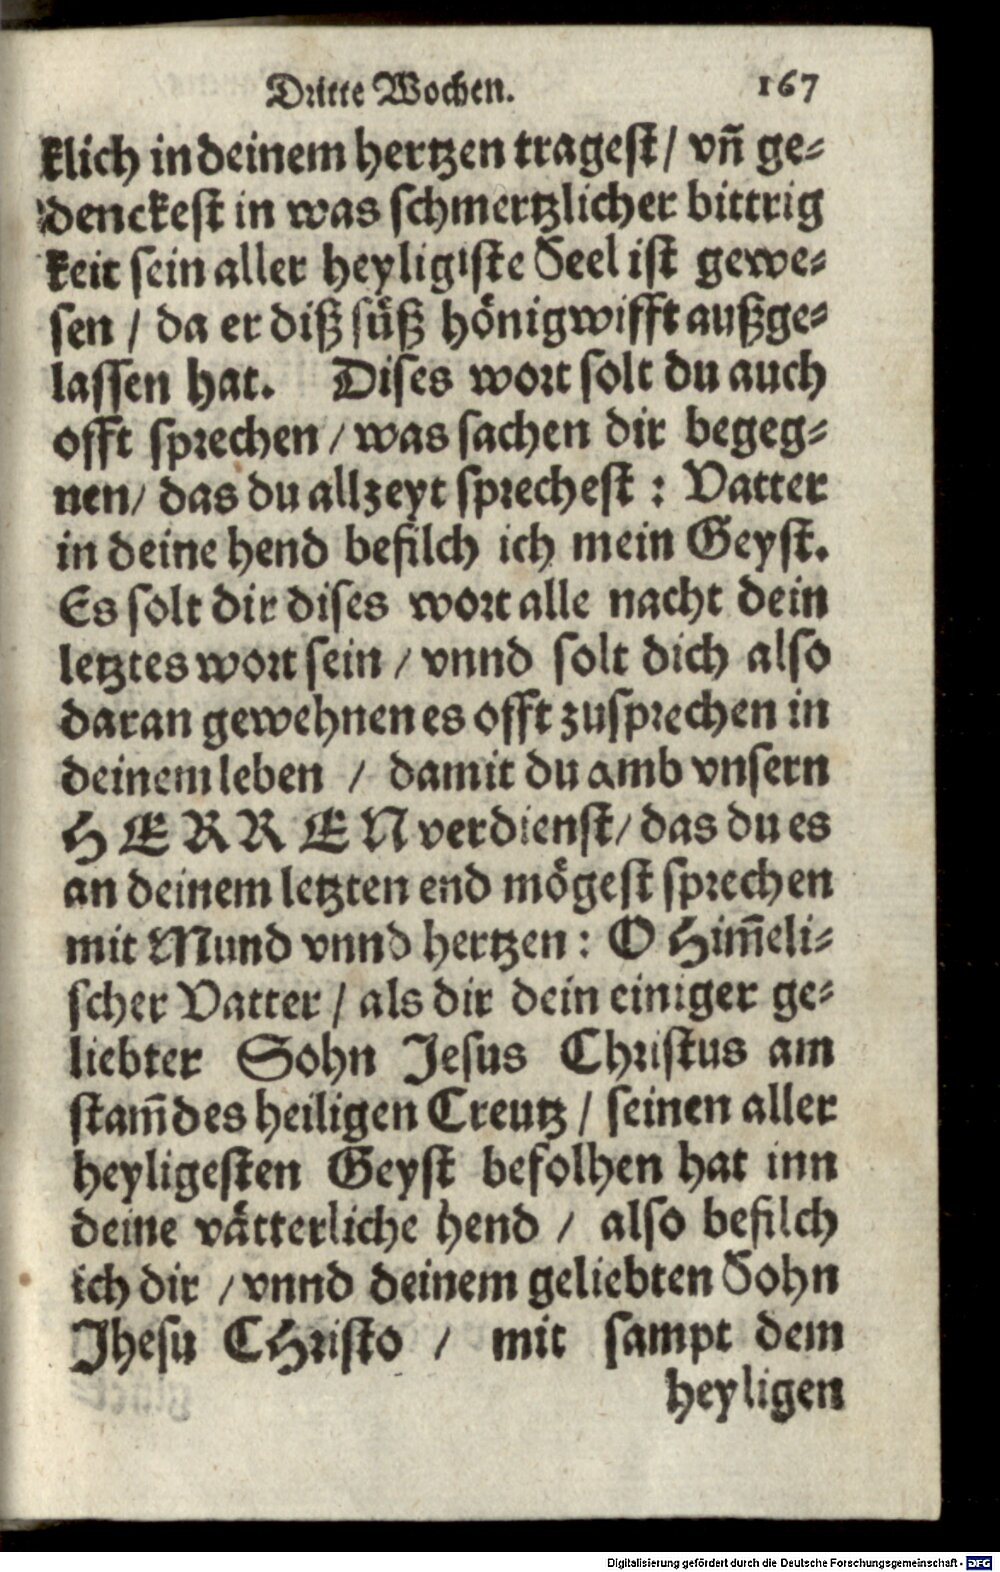 Dritte Wochen. 167
klich in deinem hertzen tragest / vñ ge=
denckest in was schmertzlicher bittrig
keit sein aller heyligiste Seel ist gewe=
sen / da er diß süß hönigwifft außge=
lassen hat. Dises wort solt du auch
offt sprechen / was sachen dir begeg=
nen / das du allzeyt sprechest : Vatter
in deine hend befilch ich mein Geyst.
Es solt dir dises wort alle nacht dein
letztes wort sein / vnnd solt dich also
daran gewehnen es offt zusprechen in
deinem leben / damit du amb vnsern
HERREN verdienst / das du es
an deinem letzten end mögest sprechen
mit Mund vnnd hertzen : O Him̃eli=
scher Vatter / als dir dein einiger ge=
liebter Sohn Jesus Christus am
stam̃ des heiligen Creutz / seinen aller
heyligesten Geyst befolhen hat inn
deine vätterliche hend / also befilch
ich dir / vnnd deinem geliebten Sohn
Jhesu CHristo / mit sampt dem
heyligen
Digitalisierung gefördert durch die Deutsche Forschungsgemeinschaft - DFG